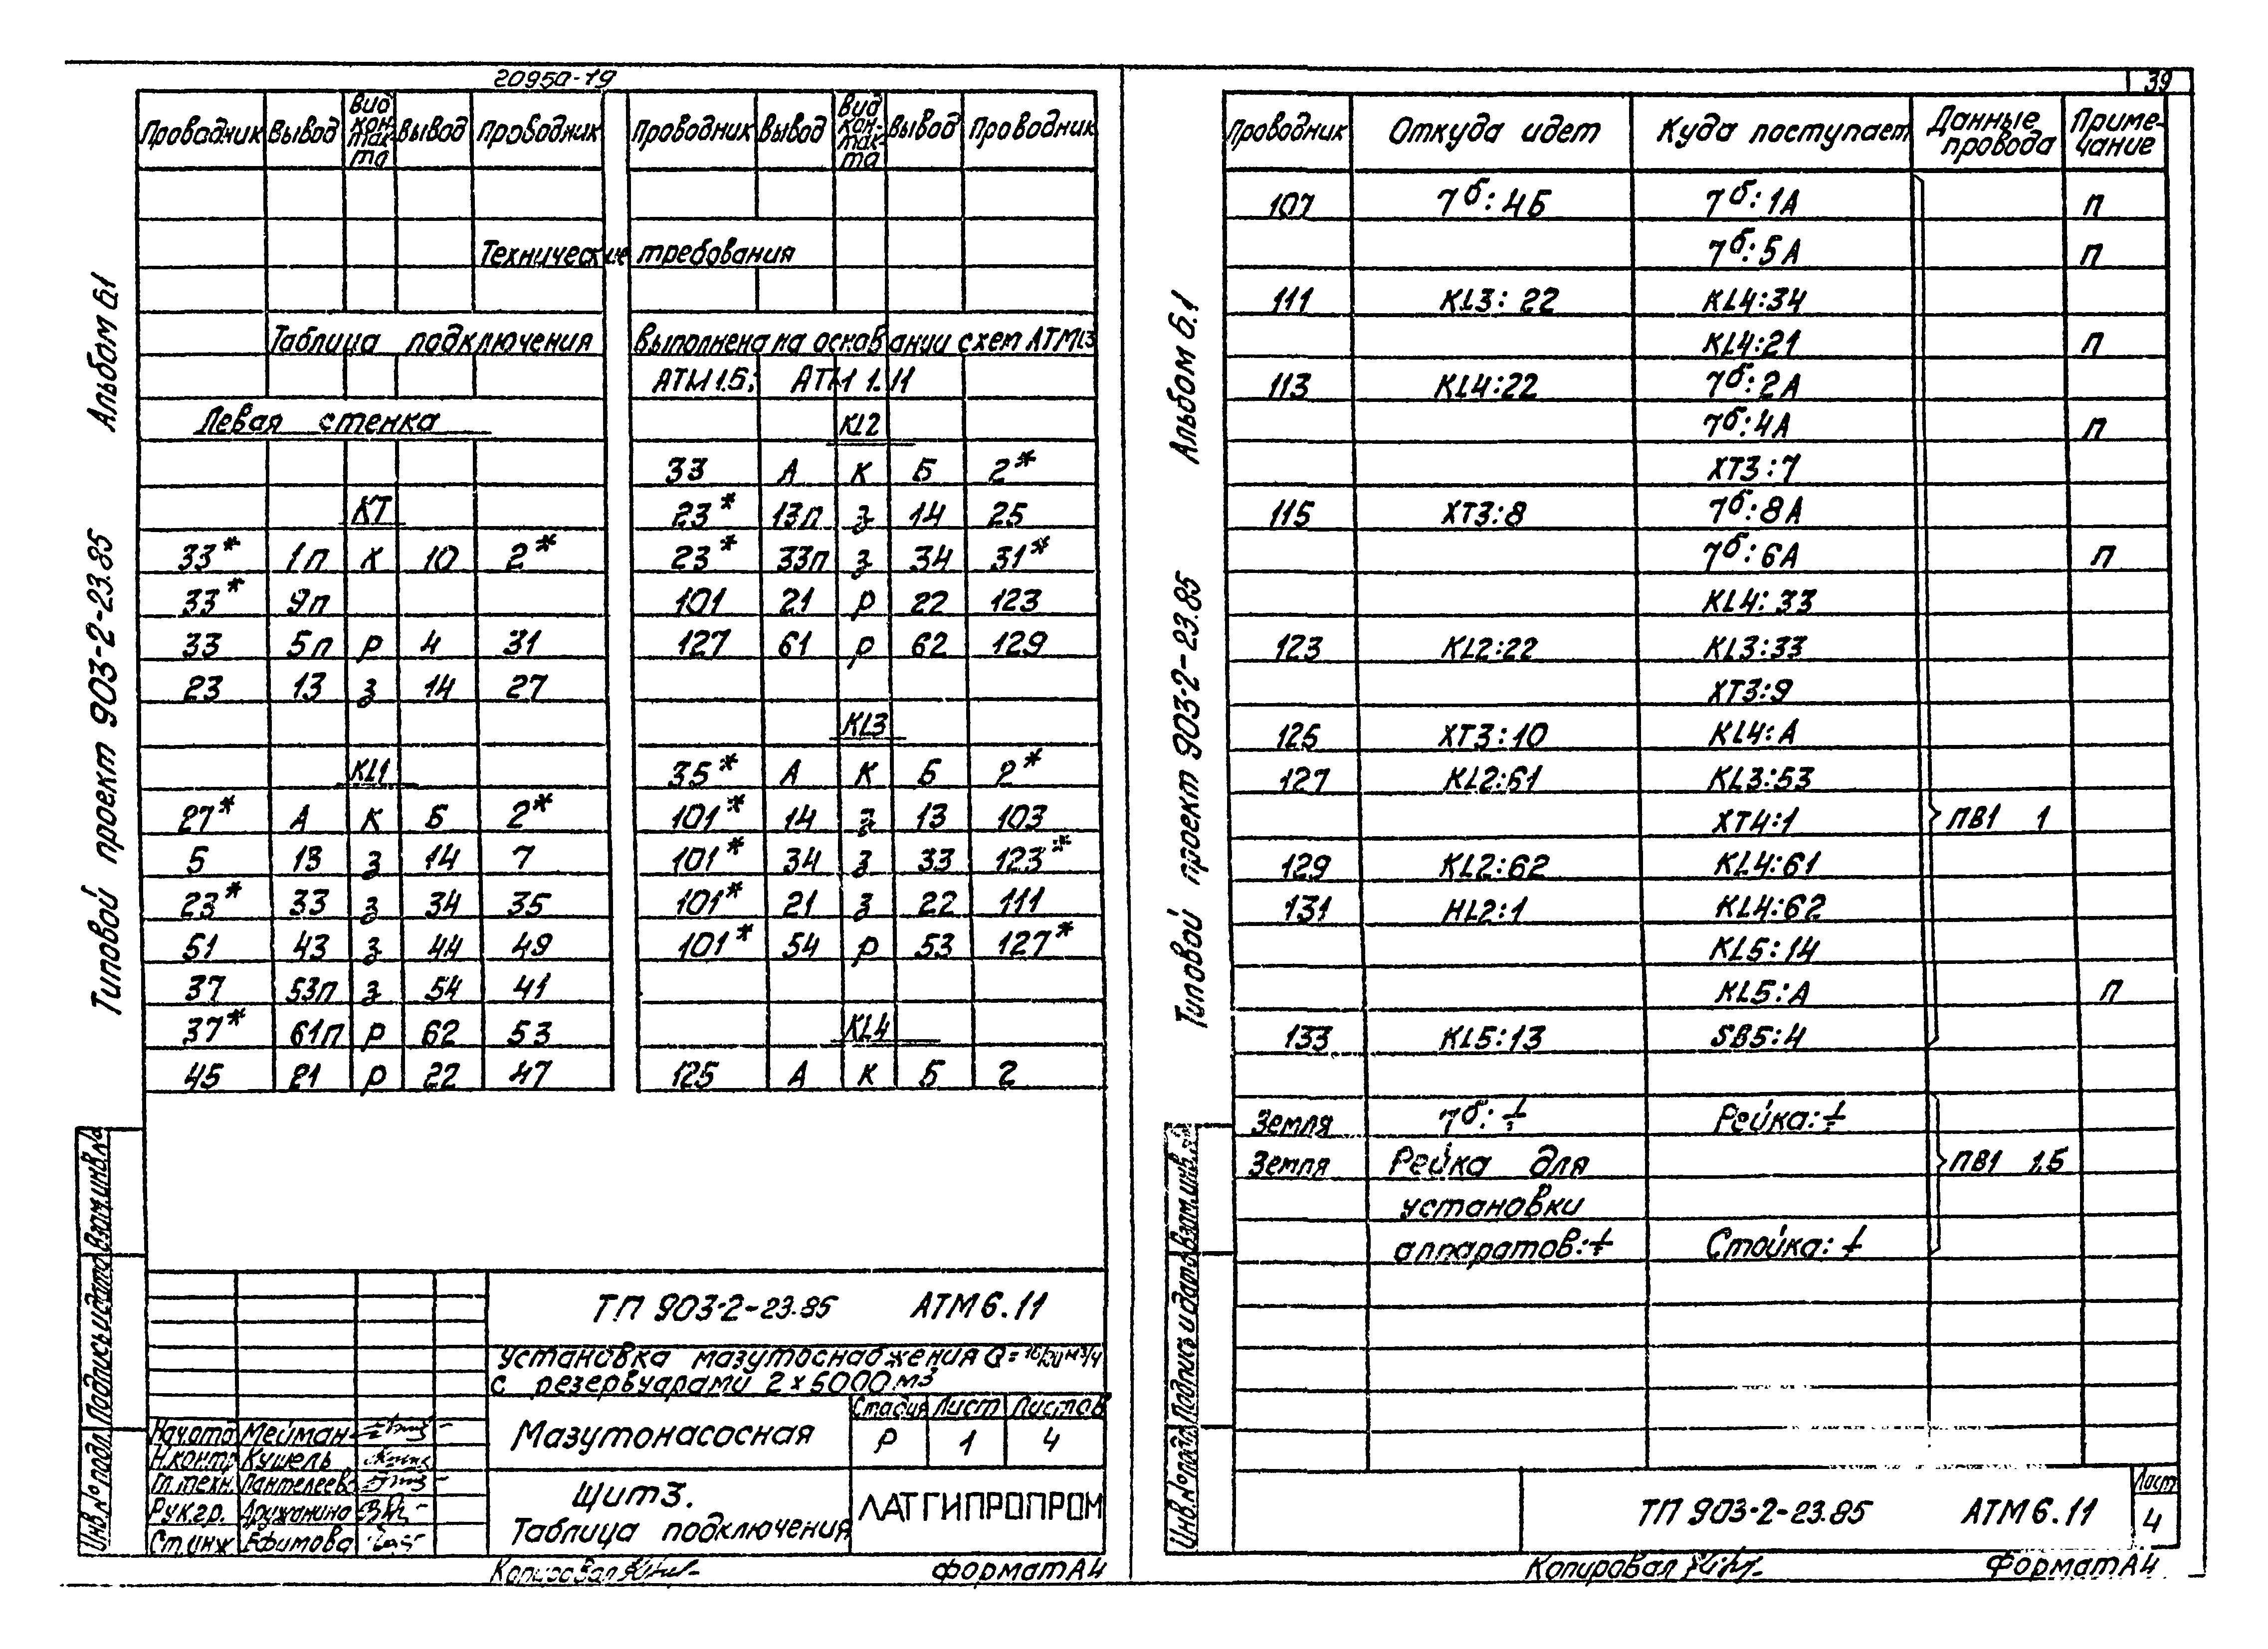 20950-19
39
Альбом 6.1
Типовой проект 903-2-23.85
Проводник Вывод Вид контакта Вывод Проводник
Проводник Вывод Вид контакта Вывод Проводник
Технические требования
Таблица подключения выполнена на основании схем АТМ1.3
АТМ 1.5; АТМ 1.11
Левая стенка
КТ
33* 1п к 10 2*
33* 9п
33 5п р 4 31
23 13 з 14 27
KL1
27* А К Б 2*
5 13 з 14 7
23* 33 з 34 35
51 43 з 44 49
37 53п з 54 41
37* 61п р 62 53
45 21 р 22 47
KL2
33 А К Б 2*
23* 13п з 14 25
23* 33п з 34 31*
101 21 р 22 123
127 61 р 62 129
KL3
35* А К Б 2*
101* 14 з 13 103
101* 34 з 33 123*
101* 21 з 22 111
101* 54 р 53 127*
KL4
125 А К Б 2
ТП 903-2-23.85 АТМ 6.11
Установка мазутоснабжения Q=
с резервуарами 2×5000 м3
Мазутонасосная
Стадия Лист Листов
Р 1 4
Щит 3.
Таблица подключения
ЛАТГИПРОПРОМ
Нач.отд Мейман
Н.контр Кушель
Гл.техн. Пантелеев
Рук.гр. Дружинина
Ст.инж Ефимова
Инв.№подл Подпись и дата Взам.инв.№
Копировал
Формат А4
Альбом 6.1
Типовой проект 903-2-23.85
Проводник Откуда идет Куда поступает Данные провода Примечание
107 7б:4Б 7б:1А п
7б:5А п
111 KL3:22 KL4:34
KL4:21 п
113 KL4:22 7б:2А
7б:4А п
ХТ3:7
115 ХТ3:8 7б:8А
7б:6А п
KL4:33
123 KL2:22 KL3:33
ХТ3:9
125 ХТ3:10 KL4:А
127 KL2:61 KL3:53
ХТ4:1 ПВ1 1
129 KL2:62 KL4:61
131 HL2:1 KL4:62
KL5:14
KL5:А п
133 KL5:13 SB5:4
Земля 7б:⏚ Рейка:⏚
Земля Рейка для ПВ1 1.5
установки
аппаратов:⏚ Стойка:⏚
Инв.№подл Подпись и дата Взам.инв.№
ТП 903-2-23.85 АТМ 6.11
Лист
4
Копировал
Формат А4